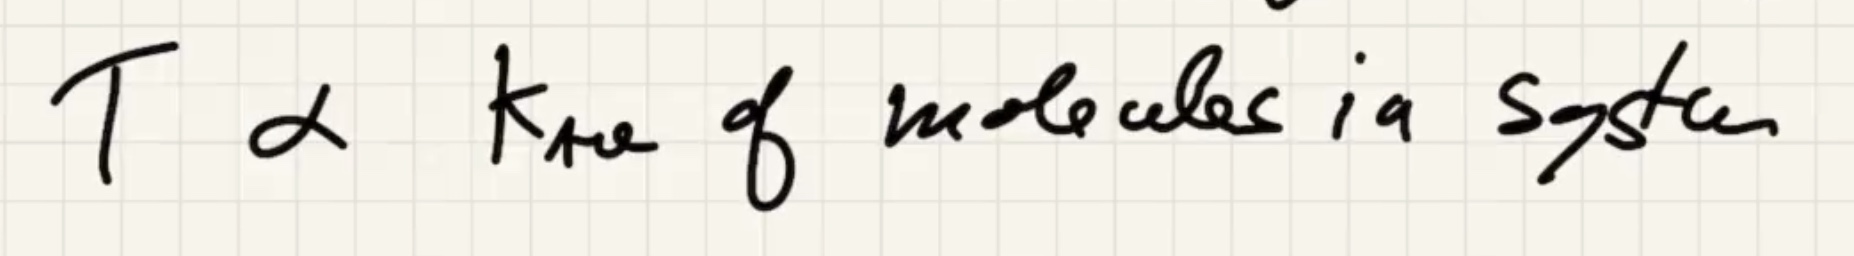 T ∝ K_Ave of molecules in system